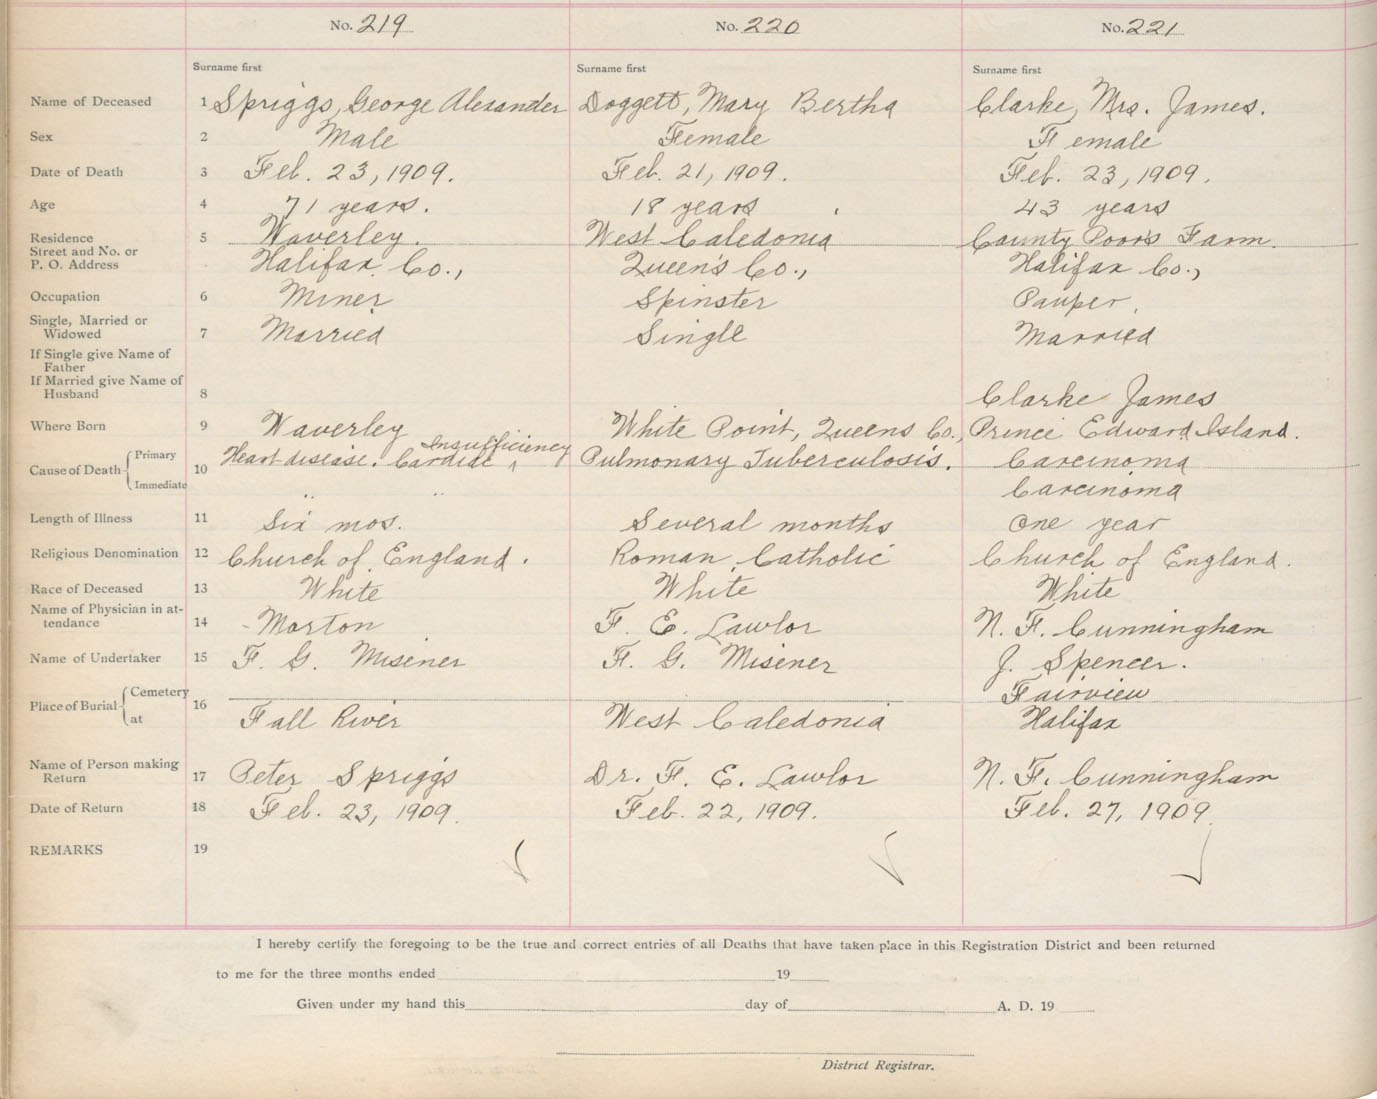 No. 219 No. 220 No. 221
Surname first Surname first Surname first
Name of Deceased 1 Spriggs, George Alexander Doggett, Mary Bertha Clarke, Mrs. James.
Sex 2 Male Female Female
Date of Death 3 Feb. 23, 1909. Feb. 21, 1909. Feb. 23, 1909.
Age 4 71 years. 18 years 43 years
Residence 5 Waverley. West Caledonia County Poor's Farm.
Street and No. or
P. O. Address Halifax Co., Queen's Co., Halifax Co.,
Occupation 6 Miner Spinster Pauper.
Single, Married or
Widowed 7 Married Single Married
If Single give Name of
Father
If Married give Name of
Husband 8 Clarke James
Where Born 9 Waverley White Point, Queens Co., Prince Edward Island.
Cause of Death Primary 10 Heart disease. Cardiac ^ Insufficiency Pulmonary Tuberculosis. Carcinoma
Immediate " " Carcinoma
Length of Illness 11 Six mos. Several months One year
Religious Denomination 12 Church of England. Roman Catholic Church of England.
Race of Deceased 13 White White White
Name of Physician in at-
tendance 14 - Morton F. E. Lawlor N. F. Cunningham
Name of Undertaker 15 F. G. Misener F. G. Misener J. Spencer.
Place of Burial Cemetery 16 Fairview
at Fall River West Caledonia Halifax
Name of Person making
Return 17 Peter Spriggs Dr. F. E. Lawlor N. F. Cunningham
Date of Return 18 Feb. 23, 1909. Feb. 22, 1909. Feb. 27, 1909
REMARKS 19
I hereby certify the foregoing to be the true and correct entries of all Deaths that have taken place in this Registration District and been returned
to me for the three months ended 19
Given under my hand this day of A. D. 19
District Registrar.